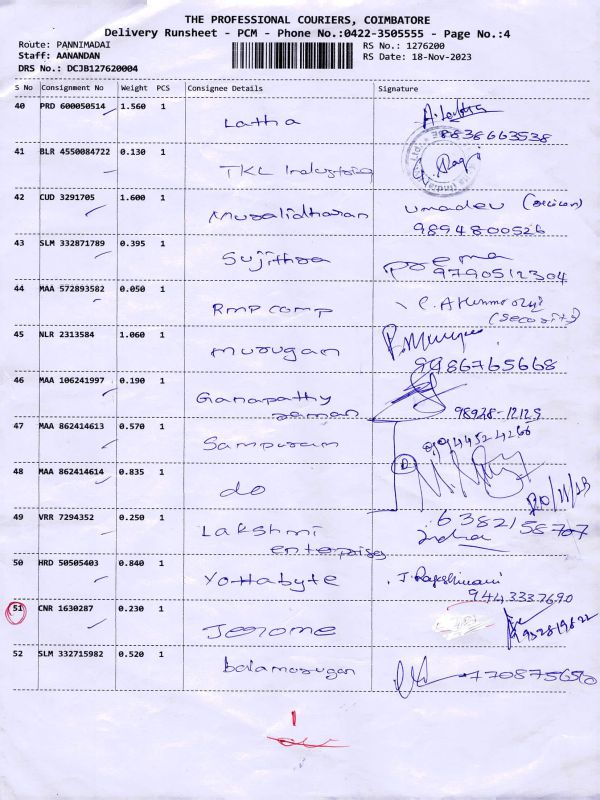 THE PROFESSIONAL COURIERS, COIMBATORE
Delivery Runsheet - PCM - Phone No.:0422-3505555 - Page No.:4
Route: PANNIMADAI
RS No.: 1276200
Staff: AANANDAN
RS Date: 18-Nov-2023
DRS No.: DCJB127620004
S No Consignment No Weight PCS Consignee Details Signature
40 PRD 600050514 1.560 1 Latha A. Latha
8838663538
41 BLR 4550084722 0.130 1 TKL Industries
42 CUD 3291705 1.600 1 Muralidharan umadev
9894800526
43 SLM 332871789 0.395 1 Sujithra prema
9790512304
44 MAA 572893582 0.050 1 Rmp comp
(Security)
45 NLR 2313584 1.060 1 murugan
9986765668
46 MAA 106241997 0.190 1 Ganapathy
raman
98928-12129
47 MAA 862414613 0.570 1 Sampuram
48 MAA 862414614 0.835 1 do
20/11/23
49 VRR 7294352 0.250 1 Lakshmi
enterprises
6382158707
Indha
50 HRD 50505403 0.840 1 Yottabyte
9443337690
51 CNR 1630287 0.230 1 Jerome
52 SLM 332715982 0.520 1 balamurugan